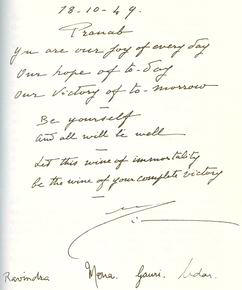 18-10-49.
Pranab
You are our joy of every day
Our hope of to-day
Our victory of to-morrow
—
Be yourself
and all will be well
—
Let this wine of immortality
be the wine of your complete victory
—
Ravindra Mona. Gauri. Udar.